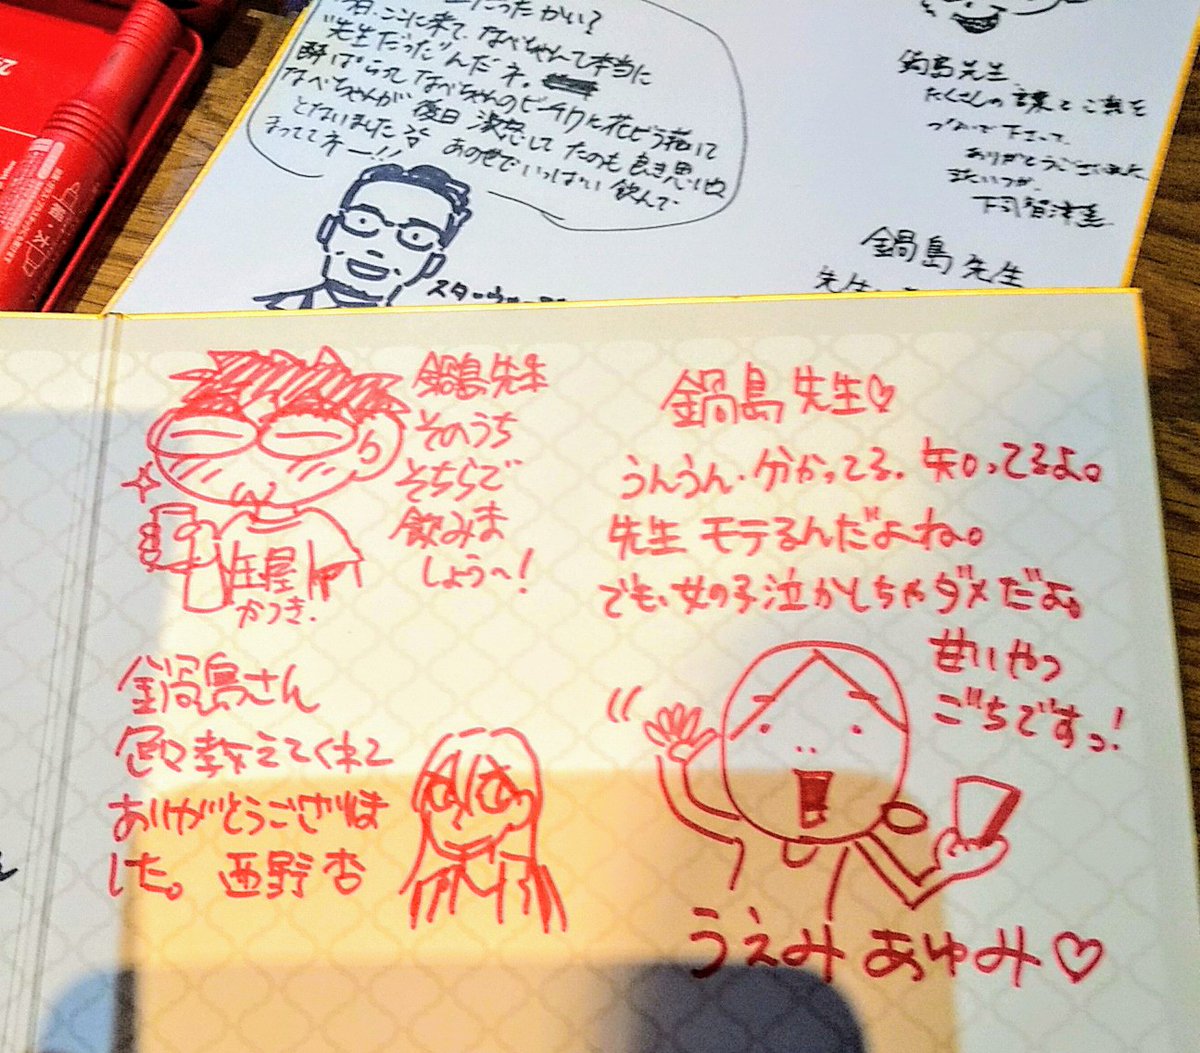 だったかい?
ここに来て、なべちゃんて本当に
"先生だった"んだネ。
酔ぱらって なべちゃんのビーチクに花びら描いて
なべちゃんが 後日 激怒して たのも 良き思い出
となりました あの世で いっぱい 飲んで
まっててネー!!
鍋島先生
たくさんの言葉とご縁を
つないで下さって、
ありがとうございました
またいつか、
鍋島先生
鍋島先生
そのうち
そちらで
飲みま
しょう〜!
庄屋
かつき.
鍋島さん
色々教えてくれて
ありがとうございま
した。 西野杏
鍋島先生♡
うんうん・分かってる. 知ってるよ。
先生 モテるんだよね。
でも、女の子泣かしちゃダメだよ。
甘いやつ
ごちですっ!
うえみ あゆみ♡